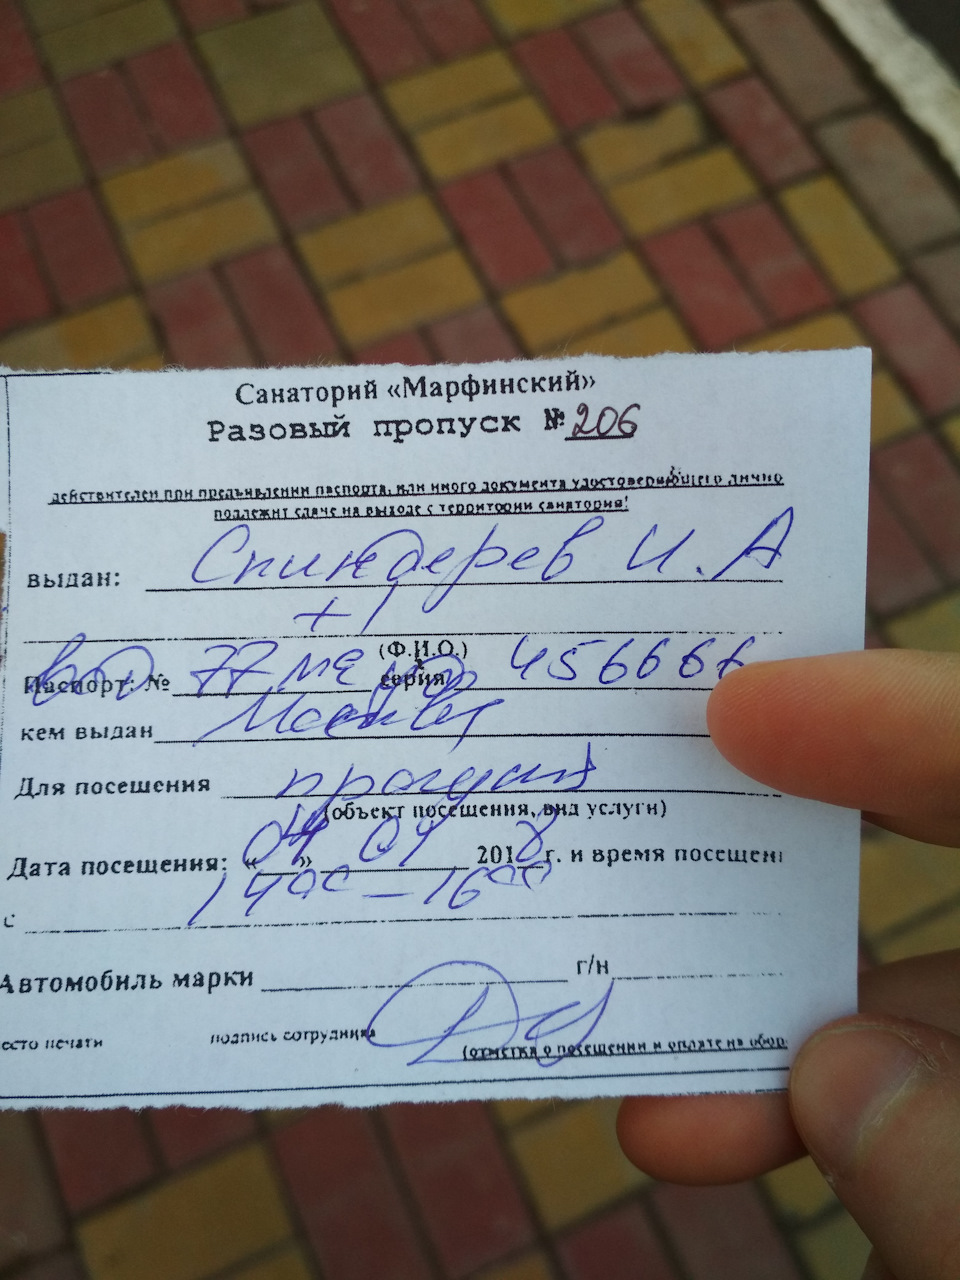 Санаторий «Марфинский»
Разовый пропуск № 206
действителен при предъявлении паспорта, или иного документа удостоверяющего лично
подлежит сдаче на выходе с территории санатория!
выдан: Спиндерев И. А
+ 1
(Ф.И.О.)
Паспорт: № 77 серия 456666
кем выдан Москвы
Для посещения прогулка
(объект посещения, вид услуги)
Дата посещения: «04» 04 2018 г. и время посещени
с 14 00 – 16 00
Автомобиль марки г/н
есто печати подпись сотрудника
(отметка о посещении и оплате на обор